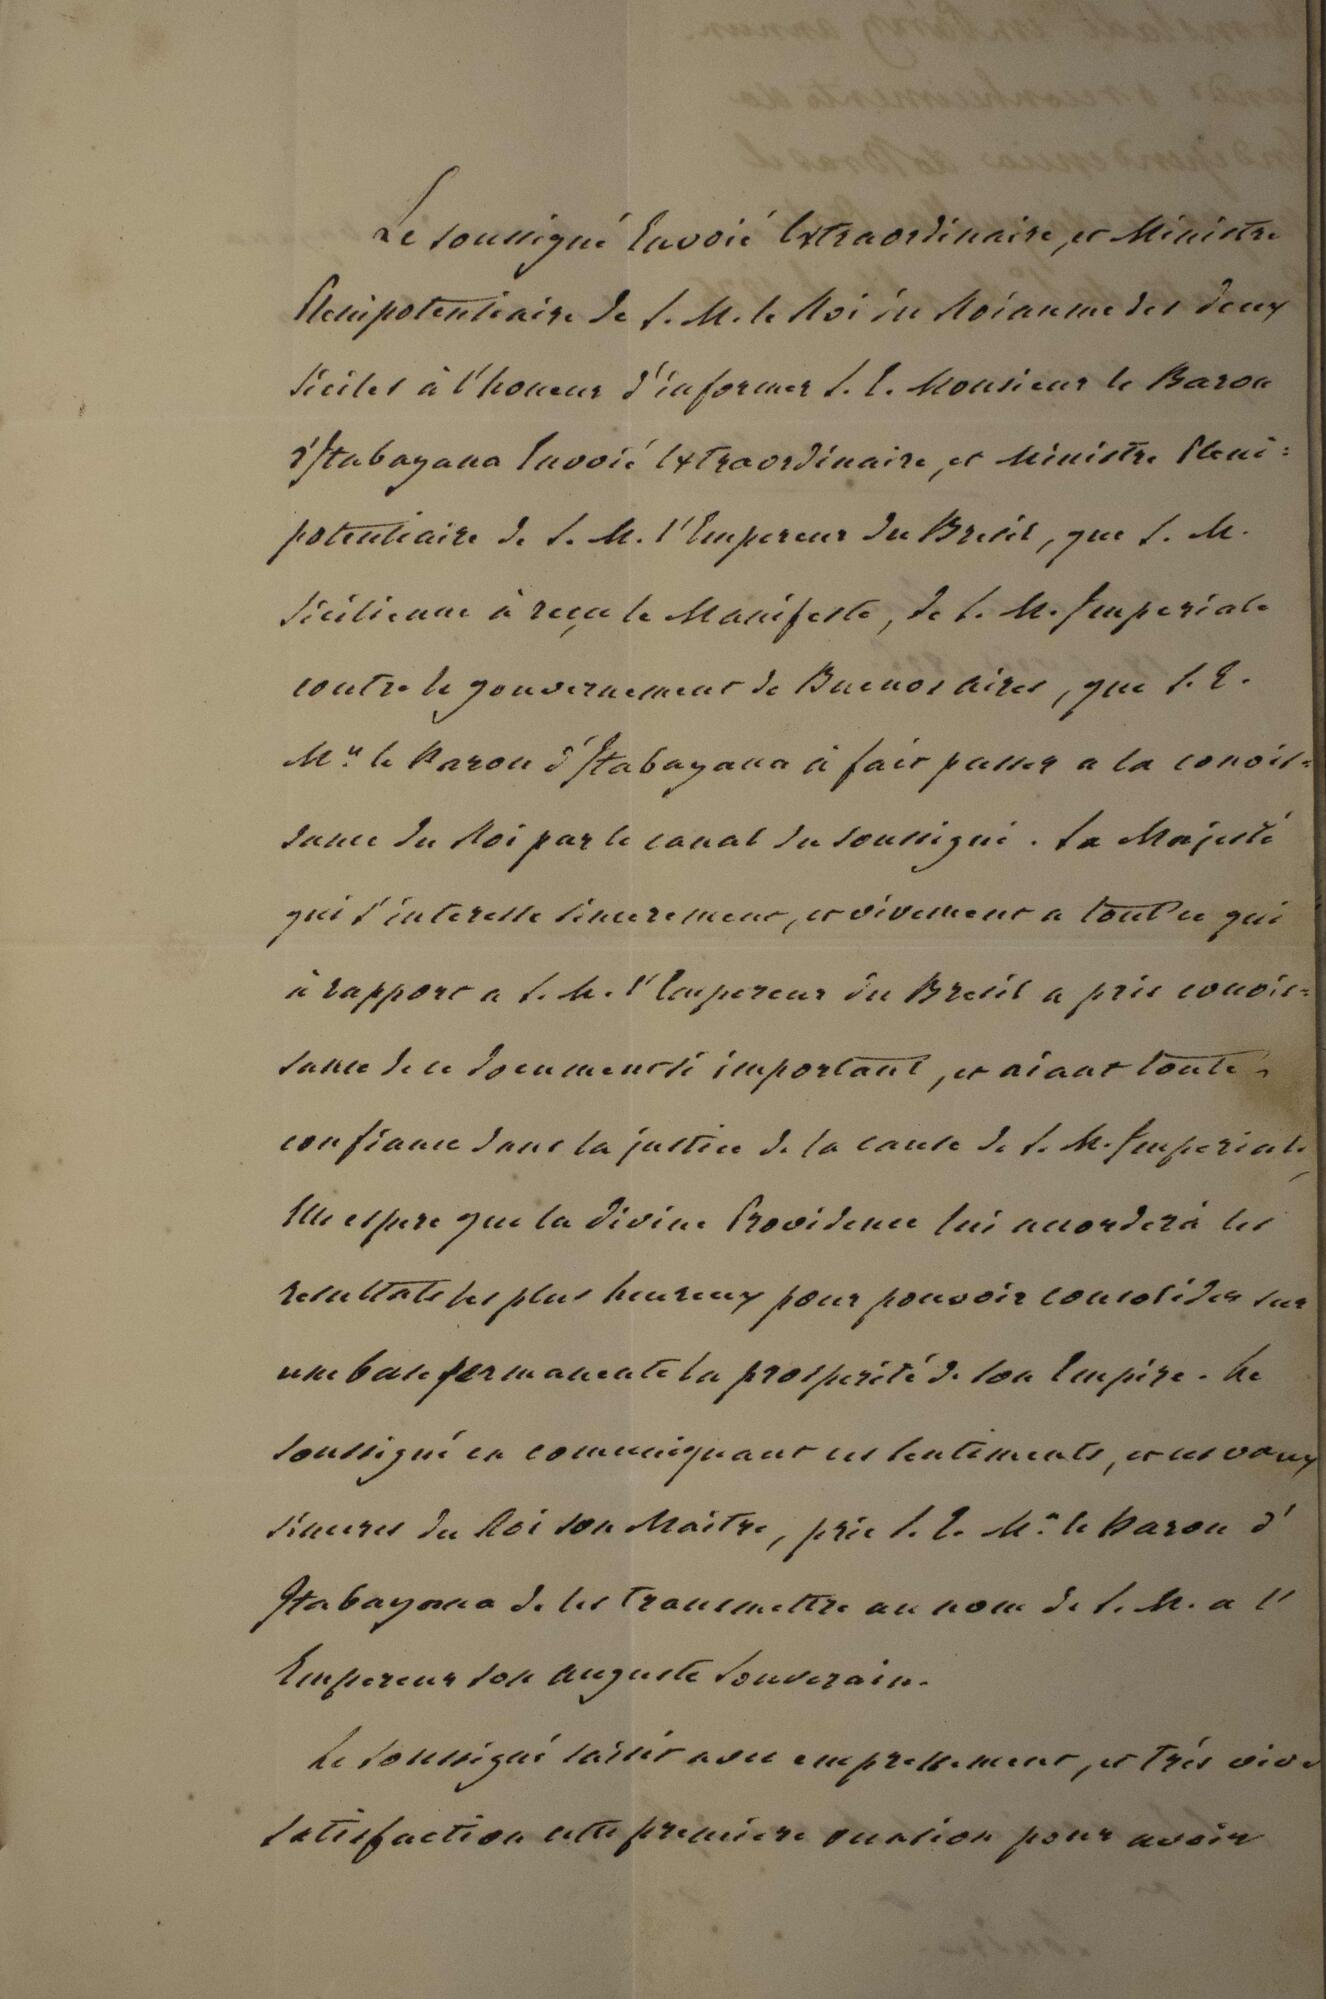 Le soussigné Envoié Extraordinaire, et Ministre
Plenipotentiaire de S. M. le Roi du Roiaume des deux
Siciles à l'honeur d'informer S. E. Monsieur le Baron
d'Itabayana Envoié Extraordinaire, et Ministre Pleni=
potentiaire de S. M. l'Empereur du Bresil, que S. M.
Sicilienne à reçu le Manifeste, de S. M. Imperiale
contre le gouvernement de Buenos aires, que S. E.
Mr. le Baron d'Itabayana à fait passer a la conois=
sance du Roi par le canal du soussigné. Sa Majesté
qui s'interesse sincerement, et vivement a tout ce qui
à rapport a S. M. l'Empereur du Bresil a pris conois=
sance de ce document si important, et aiant toute
confiance dans la justice de la cause de S. M. Imperiale,
Elle espere que la divine Providence lui accorderà les
resultats les plus heureux pour pouvoir consolider sur
une base permanente la prosperité de son Empire. Le
soussigné en communiquant ces sentiments, et ces vœux
sinceres du Roi son Maitre, prie S. E. Mr. le Baron d'
Itabayana de les transmettre au nom de S. M. a l'
Empereur son auguste Souverain.
Le soussigné saisit avec empressement, et très vive
satisfaction cette premiere occasion pour avoir